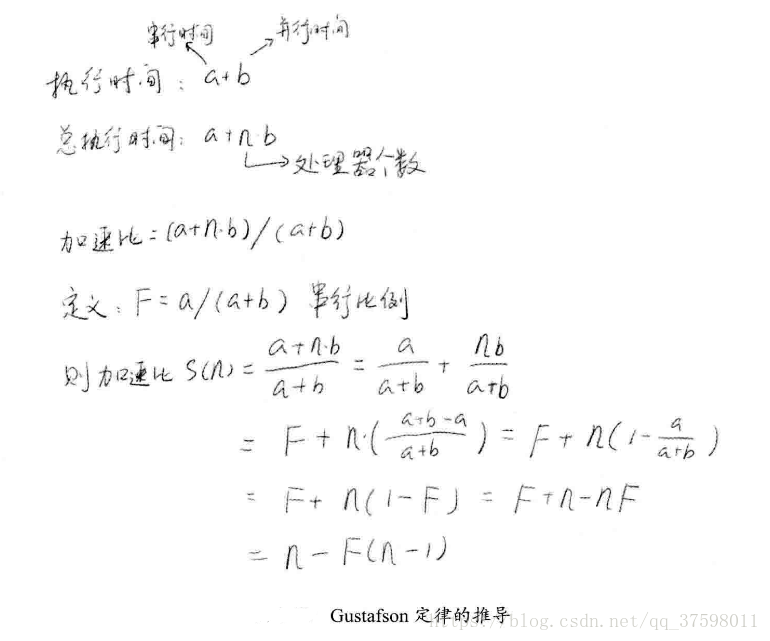 串行时间 并行时间
执行时间：a+b
总执行时间：a+n·b
处理器个数
加速比=(a+n·b)/(a+b)
定义：F=a/(a+b) 串行比例
则加速比 S(n)=\frac{a+n·b}{a+b}=\frac{a}{a+b}+\frac{nb}{a+b}
=F+n·(\frac{a+b-a}{a+b})=F+n(1-\frac{a}{a+b})
=F+n(1-F)=F+n-nF
=n-F(n-1)
Gustafson 定律的推导
https://blog.csdn.net/qq_37598011